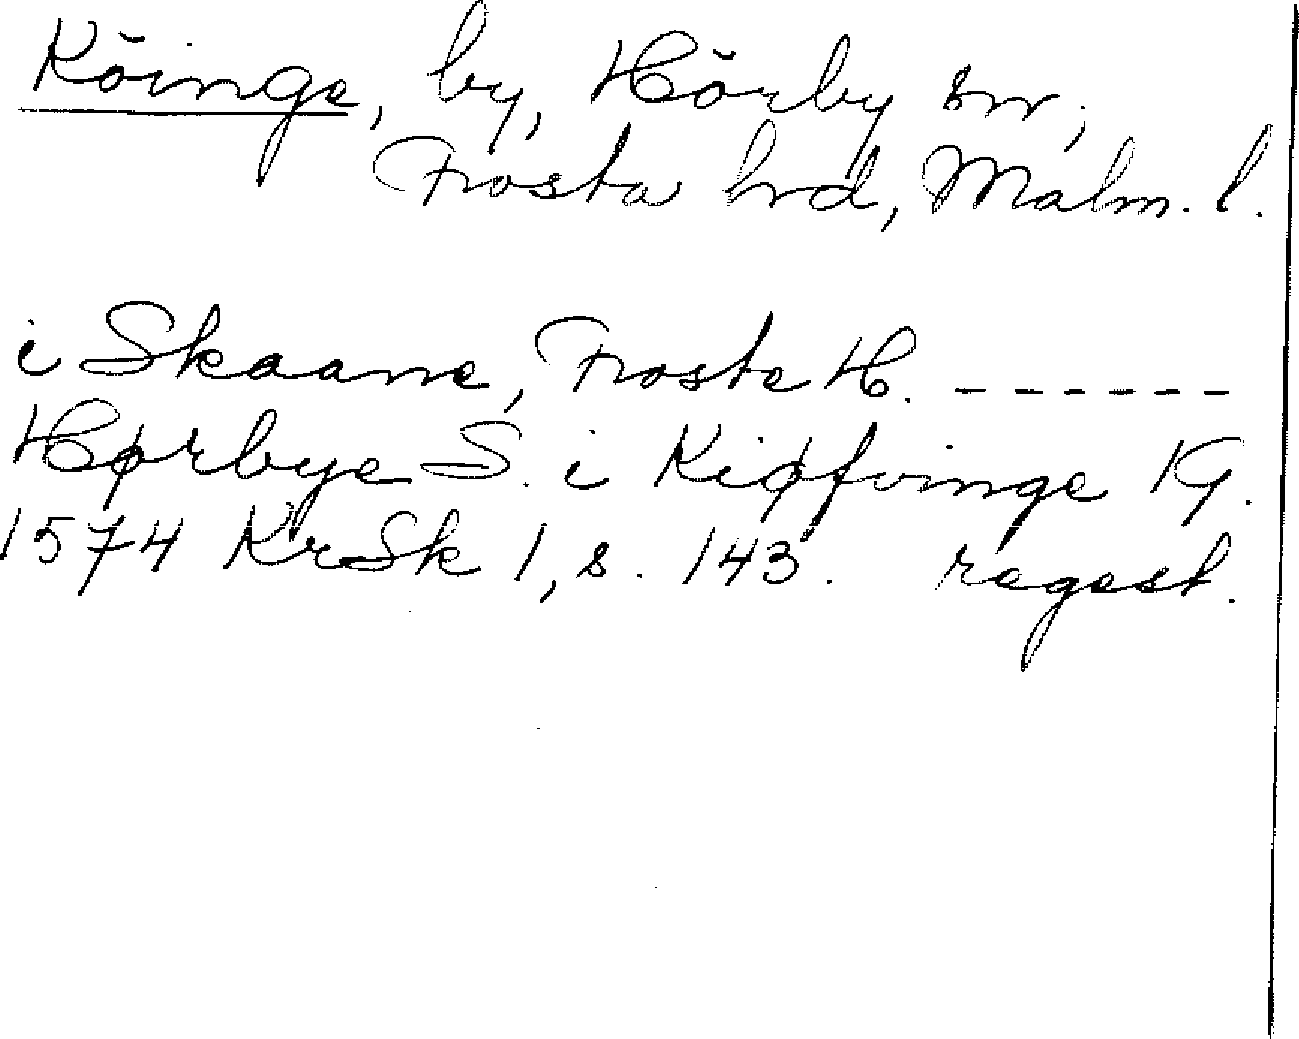 Köinge, by, Hörby sn,
Frosta hrd, Malm. l.
i Skaane, Froste H. ------
Hørbye S. i Kiøfvinge 1 G.
1574 KrSk 1, s. 143. regest.